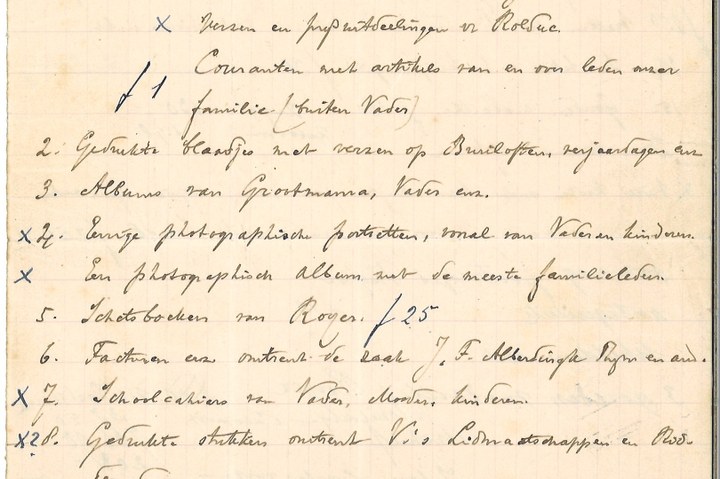 x Verzen en prijsuitdeelingen v. Rolduc.
ƒ 1 Couranten met artikels van en over leden onzer
familie (buiten Vader)
2. Gedrukte blaadjes met verzen op Bruiloften, verjaardagen enz
3. Albums van Grootmama, Vader enz.
x 4. Eenige photographische portretten, vooral van Vader en kinderen.
x Een photographisch Album met de meeste familieleden.
5. Schetsboeken van Royer. ƒ 25
6. Facturen enz omtrent de zaak J. F. Alberdingk Thym en and.
x 7. Schoolcahiers van Vader, Moeder, kinderen.
x? 8. Gedrukte stukken omtrent V.'s Lidmaatschappen en Rid-